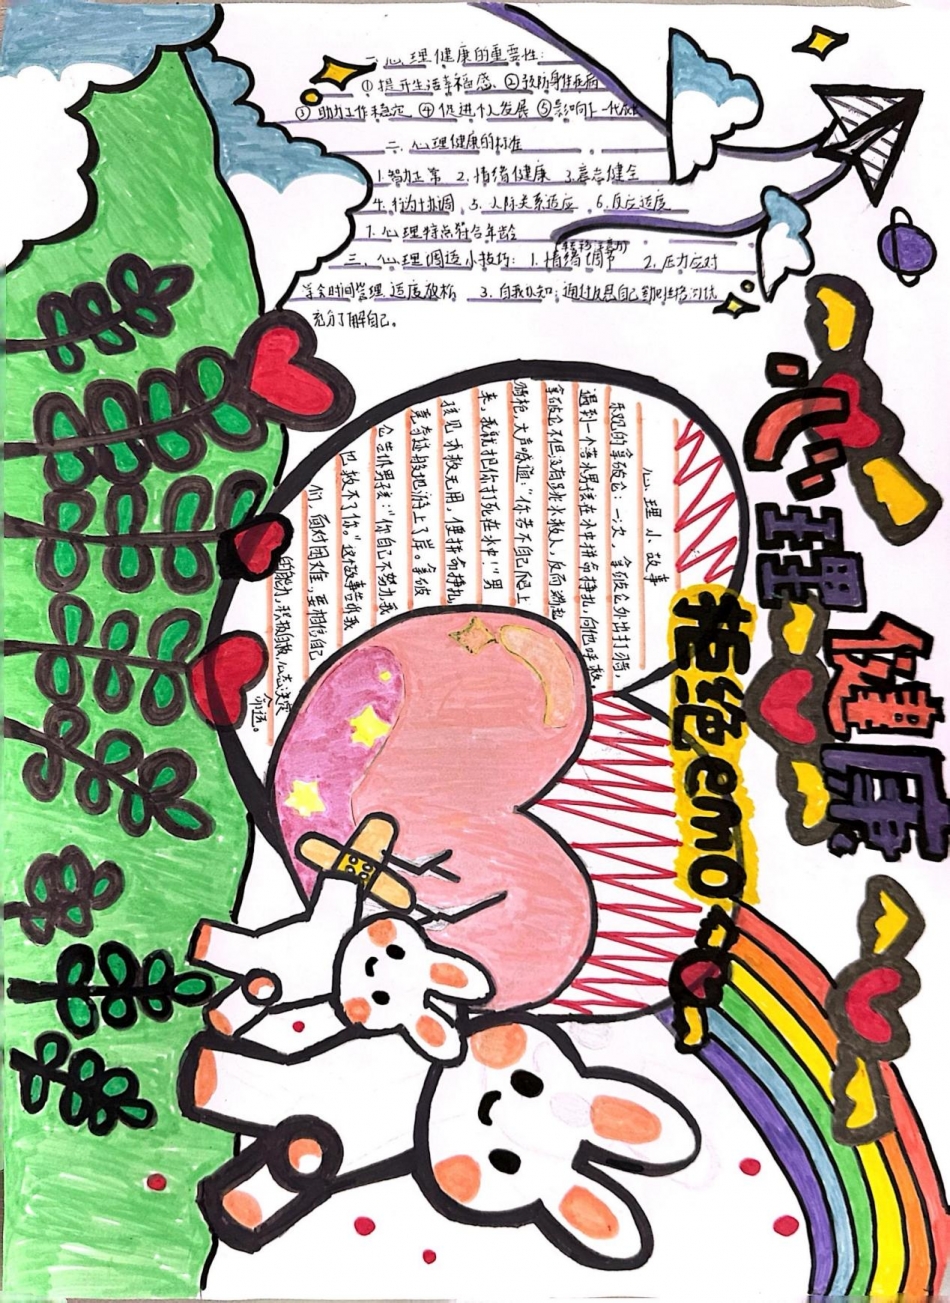 心理健康
拒绝emo
一、心理健康的重要性:
①提升生活幸福感、②预防身体疾病
③助力工作稳定 ④促进个人发展 ⑤影响下一代成长
二、心理健康的标准
1.智力正常 2.情绪健康 3.意志健全
4.行为协调 5.人际关系适应 6.反应适度
7.心理特点符合年龄
三、心理调适小技巧: 1.情绪调节 2.压力应对
(转移注意力)
学会时间管理,适度放松 3.自我认知:通过反思自己
充分了解自己。
心理小故事
乐观的拿破仑:一次,拿破仑外出打猎,
遇到一个落水男孩在水中拼命挣扎,向他呼救。
拿破仑不但没有跳水救人,反而端起
猎枪,大声喊道:“你若不自己爬上
来,我就把你打死在水中!”男
孩见求救无用,便拼命挣扎,
竟奇迹般地游上了岸。拿破
仑告诉男孩:“你自己不努力,我
也救不了你。”这故事告诉我
们,面对困难,要相信自己
的能力,积极自救,心态决定
命运。